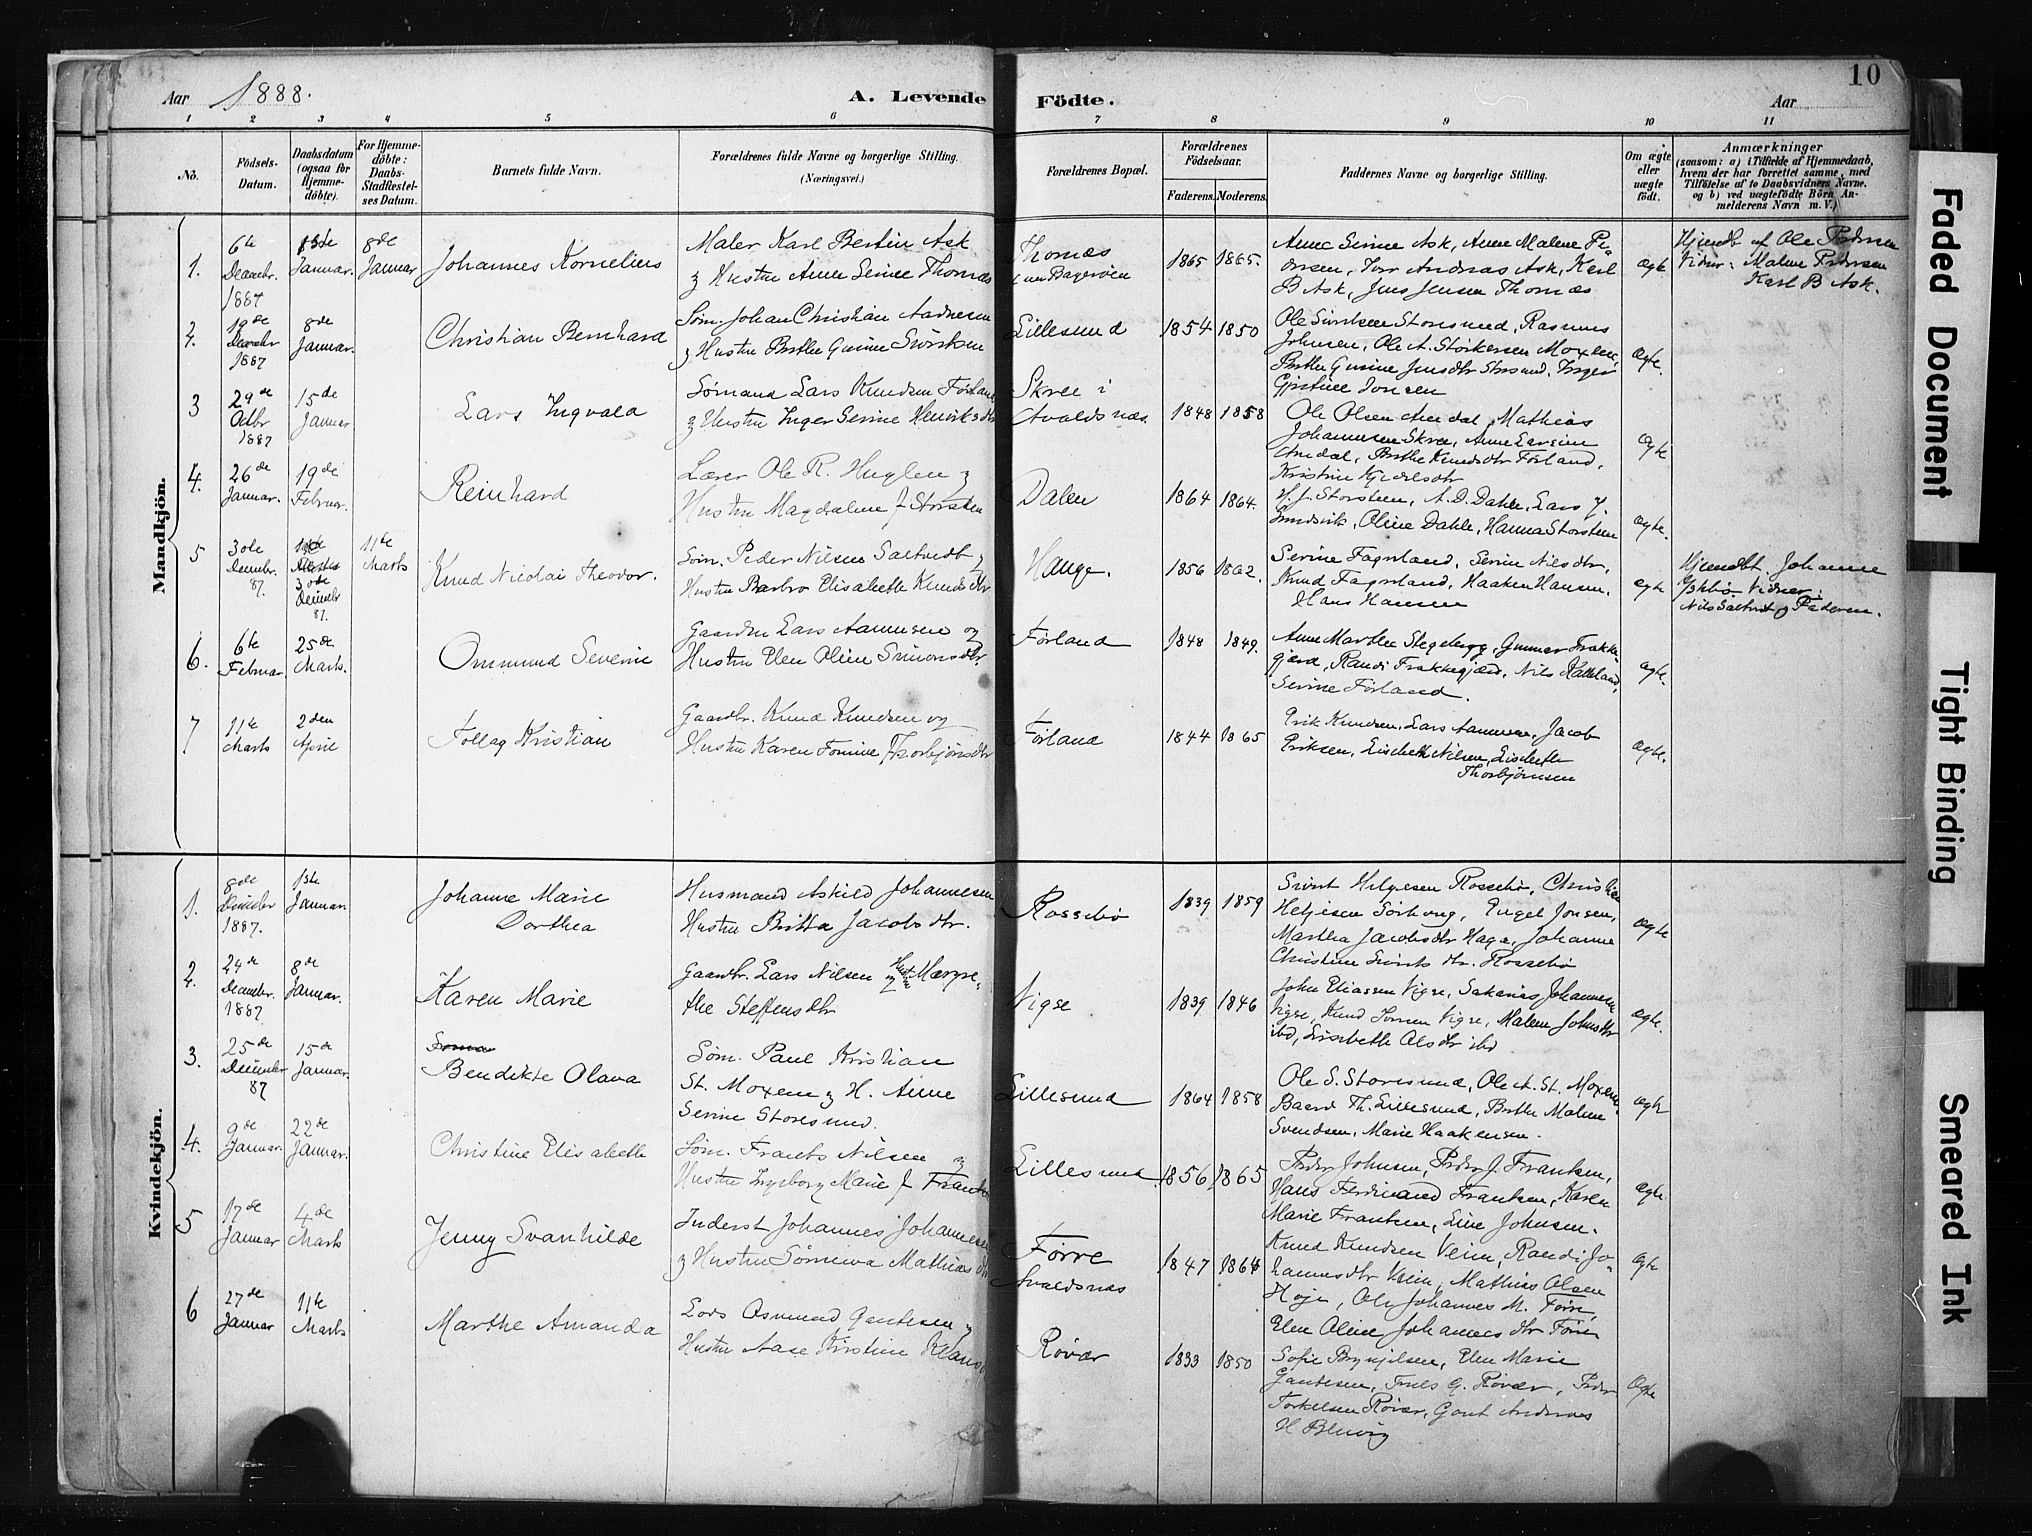 10
Aar 1888.
A. Levende Födte.
Aar
1 2 3 4 5 6 7 8 9 10 11
No.
Födsels-
Datum.
Daabsdatum
(ogsaa for
Hjemme-
döbte).
For Hjemme-
döbte:
Daabs-
Stadfæstel-
ses Datum.
Barnets fulde Navn.
Forældrenes fulde Navne og borgerlige Stilling.
(Næringsvei.)
Forældrenes Bopæl.
Forældrenes
Födselsaar.
Faderens. Moderens.
Faddernes Navne og borgerlige Stilling.
Om ægte
eller
uægte
födt.
Anmærkninger
(saasom: a) i Tilfælde af Hjemmedaab,
hvem der har forrettet samme, med
Tilföielse af to Daabsvidners Navne,
og b) ved uægtefödte Börn An-
melderens Navn m. V.)
Mandkjön.
1.
6te
Decembr.
1887
Januar.
8de
Januar
Johannes Kornelius
Maler Karl Bertin Ask
Hustru Anne Serine Thomæs
Thomæs
1865 1865.
Anne Serine Ask, Anne Malene Pe-
Andreas Ask, Karl
B Ask, Jens Jensen Thomæs
ægte
Hjemdbt af Ole Pedersen
Vidner: Malene Pedersen
Karl B Ask.
2.
19de
Decbr
1887
8de
Januar.
Christian Bernhard
Søm. Johan Christian Aadnesen
Hustru Berthe Gurine Sivertsen
Lillesund
1854 1850
Ole Sivertsen Storesund, Rasmus
Johnsen, Ole A. Størkersen Moxem,
Berthe Gurine Jensdtr Storesund, Inger
Gjertine Jonsen
ægte.
3
29de
Octbr
1887
15de
Januar
Lars Ingvald
Sømand Lars Knudsen Førland
Hustru Inger Serine Henriksdtr
Skree i
Avaldsnæs.
1848 1858
Ole Olsen Aredal, Mathias
Johannesen Skree, Anne
Aredal, Berthe Knudsdtr Førland,
Kristine
ægte
4.
26de
Januar.
19de
Februar.
Reinhard
Lærer Ole R. Huglen
Hustru Magdalene J Storsten
Dalen
1864 1864.
H. J. Storsteen, A. D. Dahle, Lars J.
Sundsvik, Oline Dahle, Hanna Storsteen
ægte.
5
3die
Decembr.
87.
3die
Decembr
87.
11te
Marts
Knud Nicolai Theodor.
Søm. Peder Nilsen Saltvedt
Hustru Barbro Elisabeth Knudsdtr
Hauge.
1856 1862.
Serine Fagerland, Serine Nilsdtr,
Knud Fagerland, Haaken Hansen,
Hans Hansen
ægte
Hjemdbt. Johanne
Vidner:
Nils Saltvedt og Faderen.
6.
6te
Februar.
25de
Marts.
Ommund Severin
Gaardbr Lars Aamunsen og
Hustru Elen Oline Simonsdtr
Førland
1848 1849.
Anne Marthe Stegeberg, Gunnar Frakke-
gjærd, Randi Frakkegjærd, Nils Kalleland,
Serine Førland.
ægte.
7
11te
Marts
2den
April
Tollag Kristian
Gaardbr. Knud Knudsen og
Hustru Karen Tomine Thorbjørnsdtr
Førland
1844 1865
Erik Knudsen, Lars Aamunsen, Jacob
Eriksen, Lisebeth Nilsen, Lisbeth
Thorbjørnsen
ægte.
Kvindekjön.
1.
8de
Decembr
1887.
1ste
Januar.
Johanne Marie
Dorthea
Husmand Askild Johannesen
Hustru Britta Jacobsdtr.
Rossebø
1839 1859
Sivert Helgesen Rossebø, Christian
Helgesen Sørhaug, Engel Jonsen,
Martha Jacobsdtr Hage, Johanne
Christine Siverts dtr. Rossebø
ægte
2.
24de
Decembr.
1887
8de
Januar.
Karen Marie
Gaardbr. Lars Nilsen og Hustru Margre-
the Steffensdtr
Vigse
1839 1846
John Eliassen Vigse, Sakarias Johannesen
Vigse, Knud Vigse, Malene Johnsdtr
ibd, Lisebeth Olsdtr ibd
ægte.
3.
25de
Decembr
87
15de
Januar.
Bendikte Olava
Søm. Paul Kristian
St. Moxem og H. Anne
Serine Storesund.
Lillesund
1864 1858
Ole S. Storesund, Ole A. St. Moxem.
Baard Th. Lillesund, Berthe Malene
Svendsen, Marie Haakensen.
ægte
4.
9de
Januar.
22de
Januar.
Christine Elisabeth
Søm. Frants Nilsen og
Hustru Ingeborg Marie J Frants
Lillesund
1856 1865
Peder Johnsen, Peder J. Frantsen,
Hans Ferdinand Frantsen, Karen
Marie Frantsen, Line Johnsen.
ægte.
5
17de
Januar
4de
Marts
Jenny Svanhilde
Inderst Johannes Johannesen
Hustru Mathiasdtr
Førre
Avaldsnæs
1847 1864
Knud Knudsen Veim, Randi Jo-
hannesdtr Veim, Mathias Olsen
Høje, Ole Johannes M. Førre,
Elen Oline Johannesdtr Førre
ægte
6
27de
Januar
11te
Marts
Marthe Amanda
Lods Osmund Gautesen
Hustru Aase Kristine
Røvær
1833 1850
Sofie Brynjelsen, Elen Marie
Gautesen, G. Røvær, Peder
Torkelsen Røvær, Gaut Andreas
H
ægte
Faded Document
Tight Binding
Smeared Ink